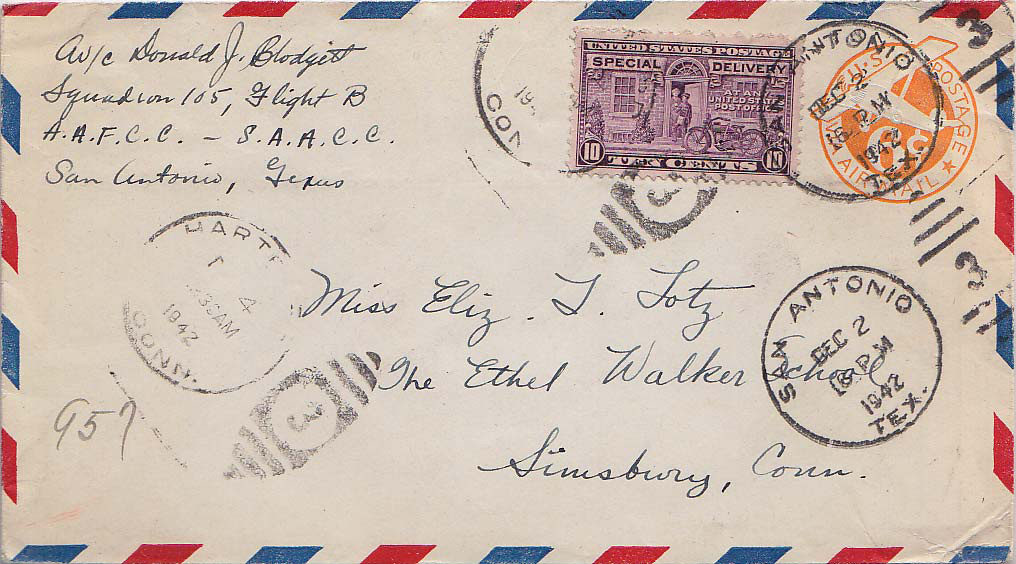 Av/c Donald J. Blodgett
Squadron 105, Flight B
A.A.F.C.C. - S.A.A.C.C.
San Antonio, Texas
UNITED STATES POSTAGE
SPECIAL DELIVERY
AT ANY
UNITED STATES
POST OFFICE
10 TEN CENTS 10
CON
19
SAN ANTONIO
DEC 2
1942
TEX.
U.S. POSTAGE
AIR MAIL
3
3
HARTF
4
33AM
1942
CONN.
Miss Eliz. T. Lotz
The Ethel Walker School
Simsbury, Conn.
SAN ANTONIO
DEC 2
1942
TEX.
957